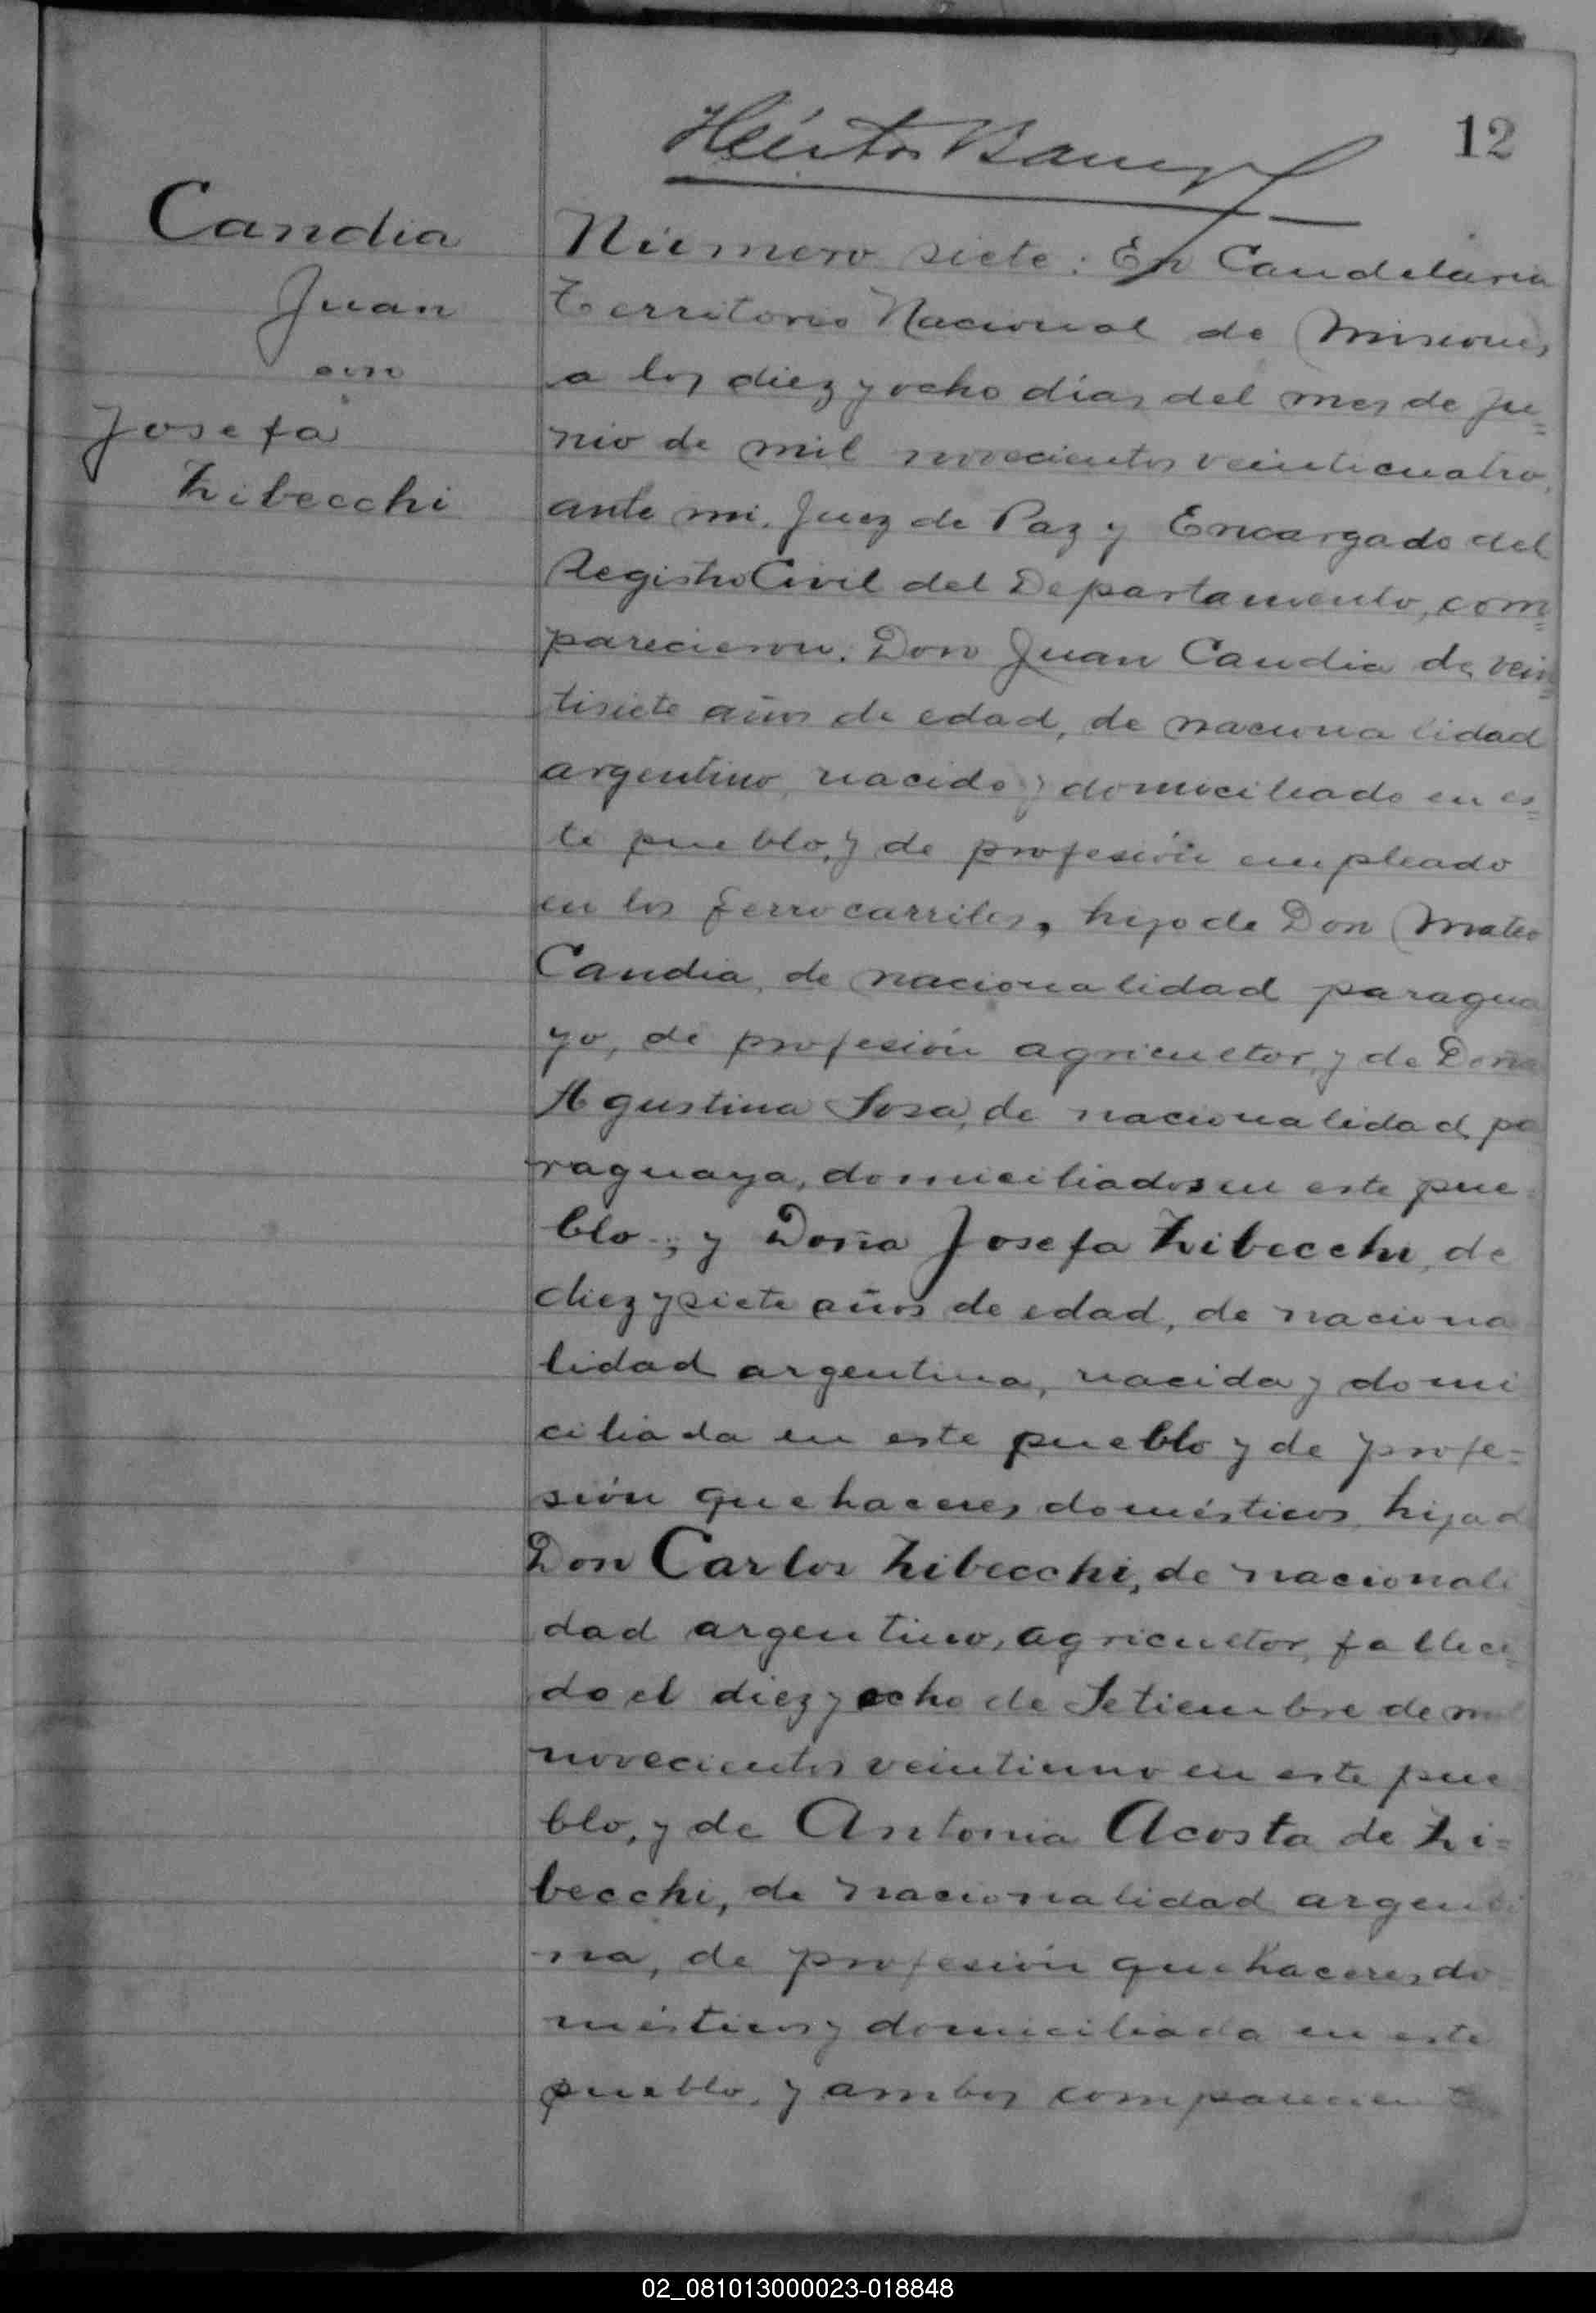 12
Candia
Juan
con
Josefa
Zibecchi
Número siete: En Candelaria
Territorio Nacional de Misiones,
a los diez y ocho días del mes de Ju=
nio de mil novecientos veinticuatro,
ante mi, Juez de Paz y Encargado del
Registro Civil del Departamento, com=
parecieron: Don Juan Candia de vein=
tisiete años de edad, de nacionalidad
argentino, nacido y domiciliado en es=
te pueblo, y de profesión empleado
en los ferrocarriles, hijo de Don Mateo
Candia, de nacionalidad paragua
yo, de profesión agricultor, y de Doña
Agustina Sosa, de nacionalidad pa
raguaya, domiciliados en este pue
blo.; y Doña Josefa Zibecchi, de
diez y siete años de edad, de naciona
lidad argentina, nacida y domi
ciliada en este pueblo y de profe=
sión quehaceres domésticos, hija d
Don Carlos Zibecchi, de nacionali
dad argentino, agricultor, falleci
do el diez y ocho de Setiembre de mil
novecientos veintiuno en este pue
blo, y de Antonia Acosta de Zi=
becchi, de nacionalidad argenti
na, de profesión quehaceres do
mésticos y domiciliada en este
pueblo, y ambos comparecien
02_081013000023-018848